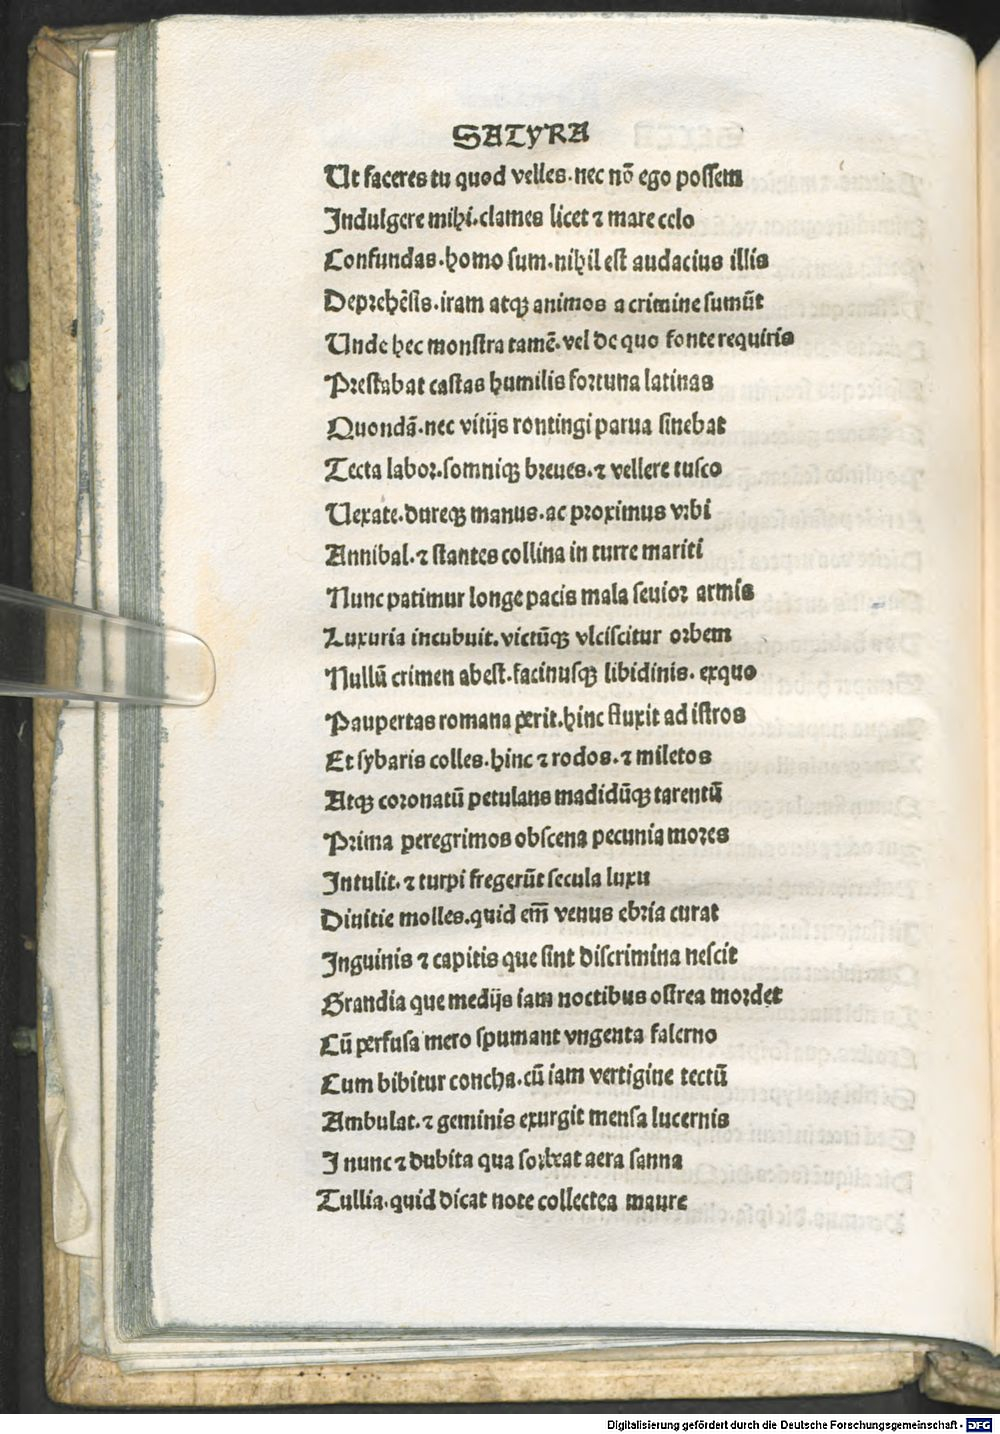 SATYRA
Ut faceres tu quod velles. nec nō ego possem
Indulgere mihi. clames licet ⁊ mare celo
Confundas. homo sum. nihil est audacius illis
Deprehēsis. iram atqꝫ animos a crimine sumūt
Unde hec monstra tamē. vel de quo fonte requiris
Prestabat castas humilis fortuna latinas
Quondā. nec vitijs rontingi parua sinebat
Tecta labor. somniqꝫ breues. ⁊ vellere tusco
Uexate. dureqꝫ manus. ac proximus vrbi
Annibal. ⁊ stantes collina in turre mariti
Nunc patimur longe pacis mala seuior armis
Luxuria incubuit. victūqꝫ vlciscitur orbem
Nullū crimen abest. facinusqꝫ libidinis. exquo
Paupertas romana ꝑerit. hinc fluxit ad istros
Et sybaris colles. hinc ⁊ rodos. ⁊ miletos
Atqꝫ coronatū petulans madidūqꝫ tarentū
Prima peregrimos obscena pecunia mores
Intulit. ⁊ turpi fregerūt secula luxu
Diuitie molles. quid em̄ venus ebria curat
Inguinis ⁊ capitis que sint discrimina nescit
Grandia que medijs iam noctibus ostrea mordet
Cū perfusa mero spumant vngenta falerno
Cum bibitur concha. cū iam vertigine tectū
Ambulat. ⁊ geminis exurgit mensa lucernis
I nunc ⁊ dubita qua sorbeat aera sanna
Tullia. quid dicat note collectea maure
Digitalisierung gefördert durch die Deutsche Forschungsgemeinschaft - DFG